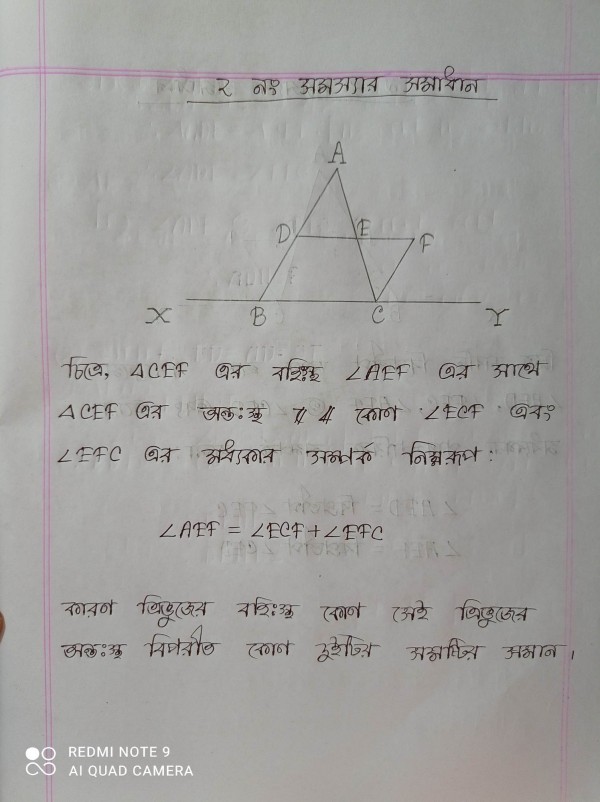 ২ নং সমস্যার সমাধান
A
D E F
X B C Y
চিত্রে, ΔCEF এর বহিঃস্থ ∠AEF এর সাথে
ΔCEF এর অন্তঃস্থ কোণ ∠ECF এবং
∠EFC এর মধ্যকার সম্পর্ক নিম্নরূপ:
∠AEF = ∠ECF + ∠EFC
কারণ ত্রিভুজের বহিঃস্থ কোণ সেই ত্রিভুজের
অন্তঃস্থ বিপরীত কোণ দুইটির সমষ্টির সমান।
REDMI NOTE 9
AI QUAD CAMERA